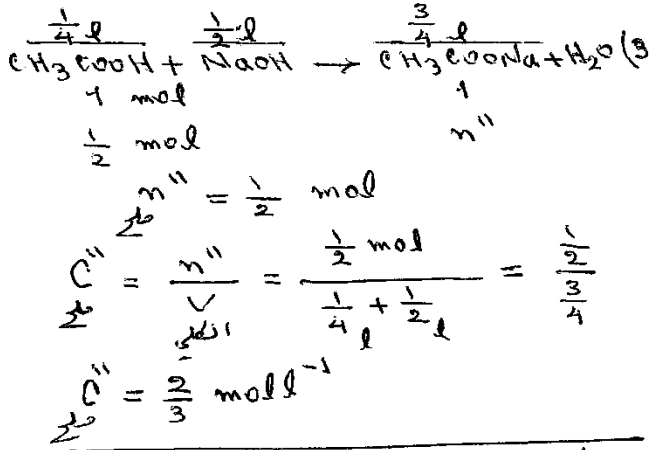 1/4 l 1/2 l 3/4 l
CH3COOH + NaOH → CH3COONa + H2O (3
1 mol 1
1/2 mol n"
n" ملح = 1/2 mol
C" ملح = n" / V = 1/2 mol / (1/4 l + 1/2 l) = 1/2 / 3/4
C" ملح = 2/3 mol l⁻¹